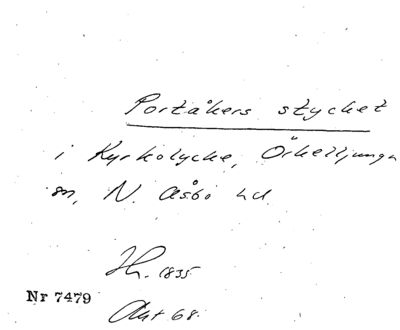 Portåkers stycket
i Kyrkolycke, Örkelljunga
sn, N. Åsbo hd
Hh. 1835
Nr 7479
Akt 68.